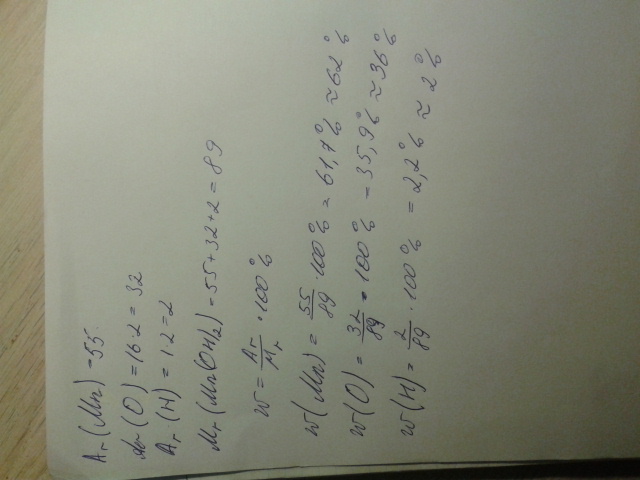 Ar (Mn) = 55.
Ar (O) = 16·2 = 32
Ar (H) = 1·2 = 2
Mr (Mn(OH)2) = 55+32+2 = 89
w = Ar/Mr · 100%
w(Mn) = 55/89 · 100% = 61,7% ≈ 62%
w(O) = 32/89 · 100% = 35,9% ≈ 36%
w(H) = 2/89 · 100% = 2,2% ≈ 2%